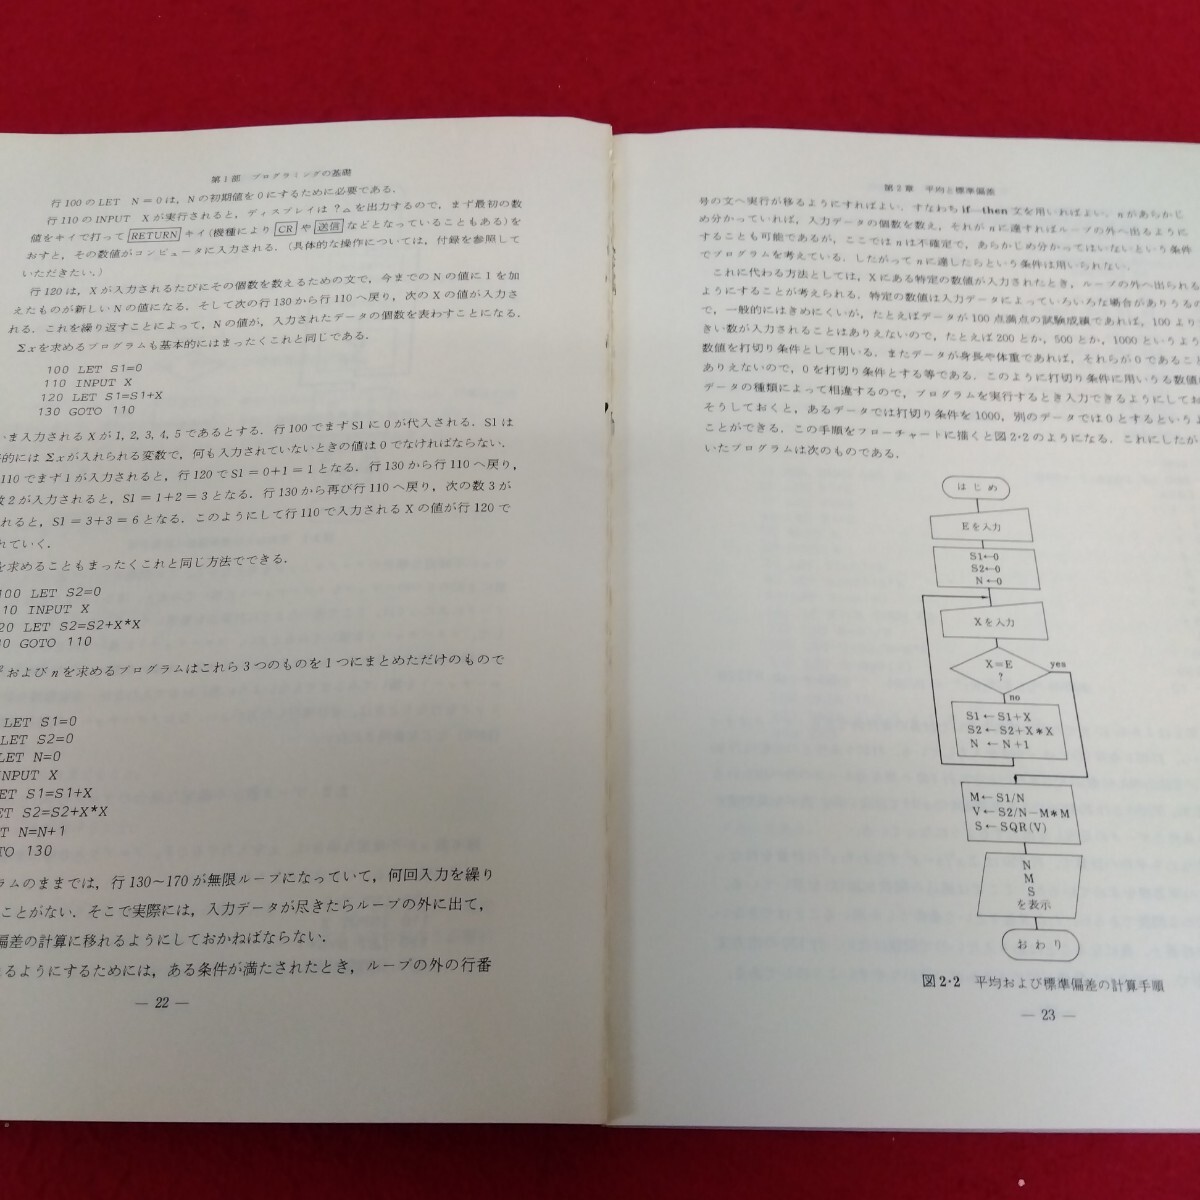 第1部 プログラミングの基礎
行100のLET N=0は，Nの初期値を0にするために必要である．
行110のINPUT Xが実行されると，ディスプレイは?△を出力するので，まず最初の数
値をキイで打ってRETURNキイ(機種によりCRや送信などとなっていることもある)を
おすと，その数値がコンピュータに入力される．(具体的な操作については，付録を参照して
いただきたい．)
行120は，Xが入力されるたびにその個数を数えるための文で，今までのNの値に1を加
えたものが新しいNの値になる．そして次の行130から行110へ戻り，次のXの値が入力さ
れる．これを繰り返すことによって，Nの値が，入力されたデータの個数を表わすことになる．
Σxを求めるプログラムも基本的にはまったくこれと同じである．
100 LET S1=0
110 INPUT X
120 LET S1=S1+X
130 GOTO 110
ま入力されるXが1, 2, 3, 4, 5であるとする．行100でまずS1に0が代入される．S1は
的にはΣxが入れられる変数で，何も入力されていないときの値は0でなければならない．
110でまず1が入力されると，行120でS1=0+1=1となる．行130から行110へ戻り，
数2が入力されると，S1=1+2=3となる．行130から再び行110へ戻り，次の数3が
れると，S1=3+3=6となる．このようにして行110で入力されるXの値が行120で
れていく．
を求めることもまったくこれと同じ方法でできる．
100 LET S2=0
10 INPUT X
20 LET S2=S2+X*X
0 GOTO 110
およびnを求めるプログラムはこれら3つのものを1つにまとめただけのもので
LET S1=0
LET S2=0
LET N=0
NPUT X
ET S1=S1+X
ET S2=S2+X*X
T N=N+1
TO 130
ラムのままでは，行130〜170が無限ループになっていて，何回入力を繰り
ことがない．そこで実際には，入力データが尽きたらループの外に出て，
偏差の計算に移れるようにしておかねばならない．
るようにするためには，ある条件が満たされたとき，ループの外の行番
— 22 —
第2章 平均と標準偏差
号の文へ実行が移るようにすればよい．すなわちif—then文を用いればよい．nがあらかじ
め分かっていれば，入力データの個数を数え，それがnに達すればループの外へ出るように
することも可能であるが，ここではnは不確定で，あらかじめ分かってはいないという条件
でプログラムを考えている．したがってnに達したらという条件は用いられない．
これに代わる方法としては，Xにある特定の数値が入力されたとき，ループの外へ出られる
ようにすることが考えられる．特定の数値は入力データによっていろいろな場合がありうるの
で，一般的にはきめにくいが，たとえばデータが100点満点の試験成績であれば，100より
きい数が入力されることはありえないので，たとえば200とか，500とか，1000というよう
数値を打切り条件として用いる．またデータが身長や体重であれば，それらが0であること
ありえないので，0を打切り条件とする等である．このように打切り条件に用いうる数値
データの種類によって相違するので，プログラムを実行するとき入力できるようにしてお
そうしておくと，あるデータでは打切り条件を1000，別のデータでは0とするという
ことができる．この手順をフローチャートに描くと図2・2のようになる．これにしたが
いたプログラムは次のものである．
はじめ
Eを入力
S1←0
S2←0
N←0
Xを入力
X=E
?
yes
no
S1←S1+X
S2←S2+X*X
N ←N+1
M←S1/N
V←S2/N−M*M
S←SQR(V)
N
M
S
を表示
おわり
図2・2 平均および標準偏差の計算手順
— 23 —